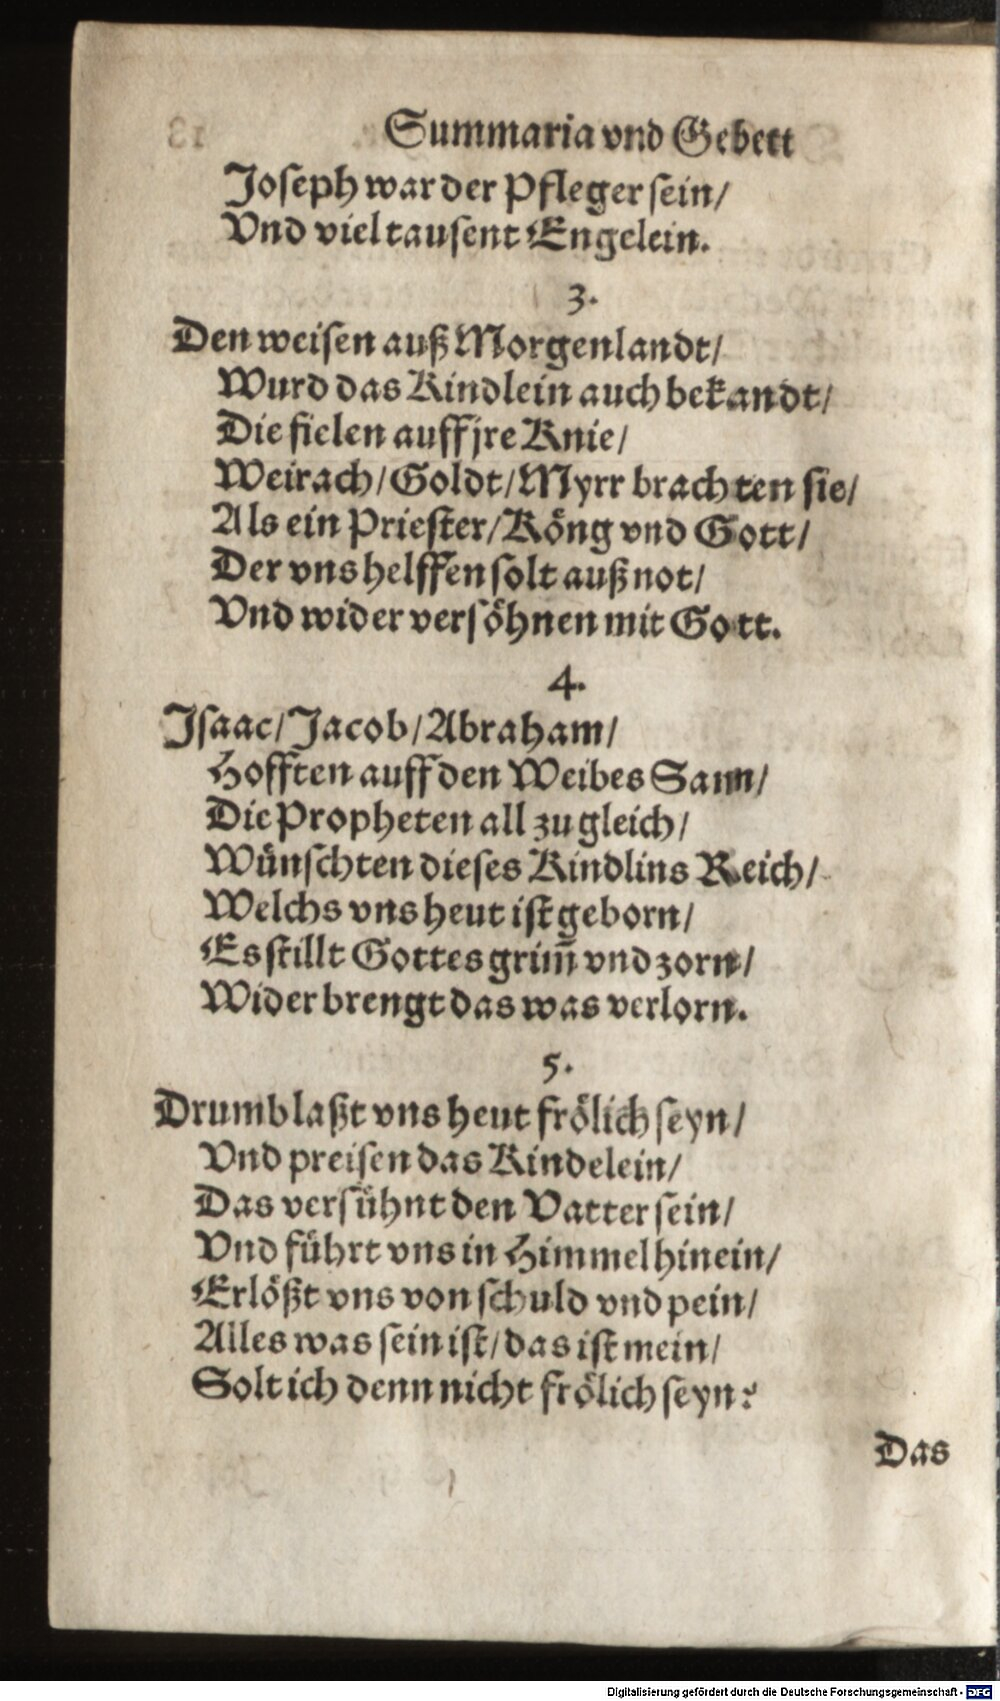 Summaria vnd Gebett
Joseph war der Pfleger sein/
Vnd viel tausent Engelein.
3.
Den weisen auß Morgenlandt/
Wurd das Kindlein auch bekandt/
Die fielen auff jre Knie/
Weirach/Goldt/Myrr brachten sie/
Als ein Priester/Köng vnd Gott/
Der vns helffen solt auß not/
Vnd wider versöhnen mit Gott.
4.
Isaac/Jacob/Abraham/
Hofften auff den Weibes Sam/
Die Propheten all zu gleich/
Wünschten dieses Kindlins Reich/
Welchs vns heut ist geborn/
Es stillt Gottes grim̃ vnd zorn/
Wider brengt das was verlorn.
5.
Drumb laßt vns heut frölich seyn/
Vnd preisen das Kindelein/
Das versühnt den Vatter sein/
Vnd führt vns in Himmel hinein/
Erlößt vns von schuld vnd pein/
Alles was sein ist/das ist mein/
Solt ich denn nicht frölich seyn?
Das
Digitalisierung gefördert durch die Deutsche Forschungsgemeinschaft - DFG